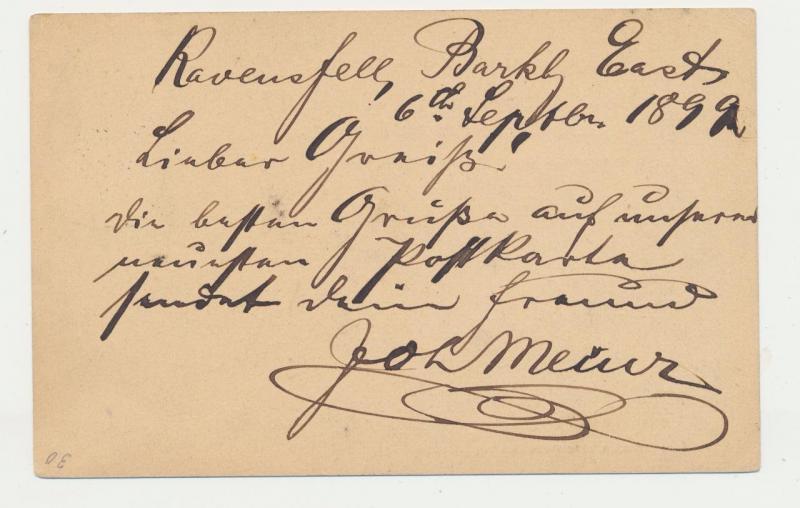 Ravensfell, Barkly East
6th Septbr. 1899
Lieber Greiß!
die besten Grüße auf unserer
neuesten Postkarte
sendet dein Freund
Joh